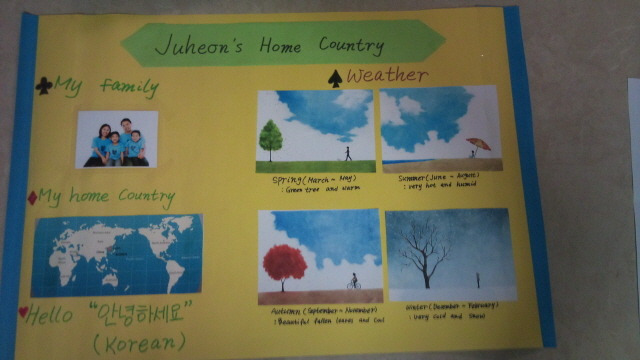 Juheon's Home Country
My family
My home Country
Hello "안녕하세요"
(Korean)
Weather
Spring (March - May)
: Green tree and warm
Summer (June - August)
: very hot and humid
Autumn (September - November)
: Beautiful fallen leaves and Cool
Winter (December - February)
: Very cold and Snow